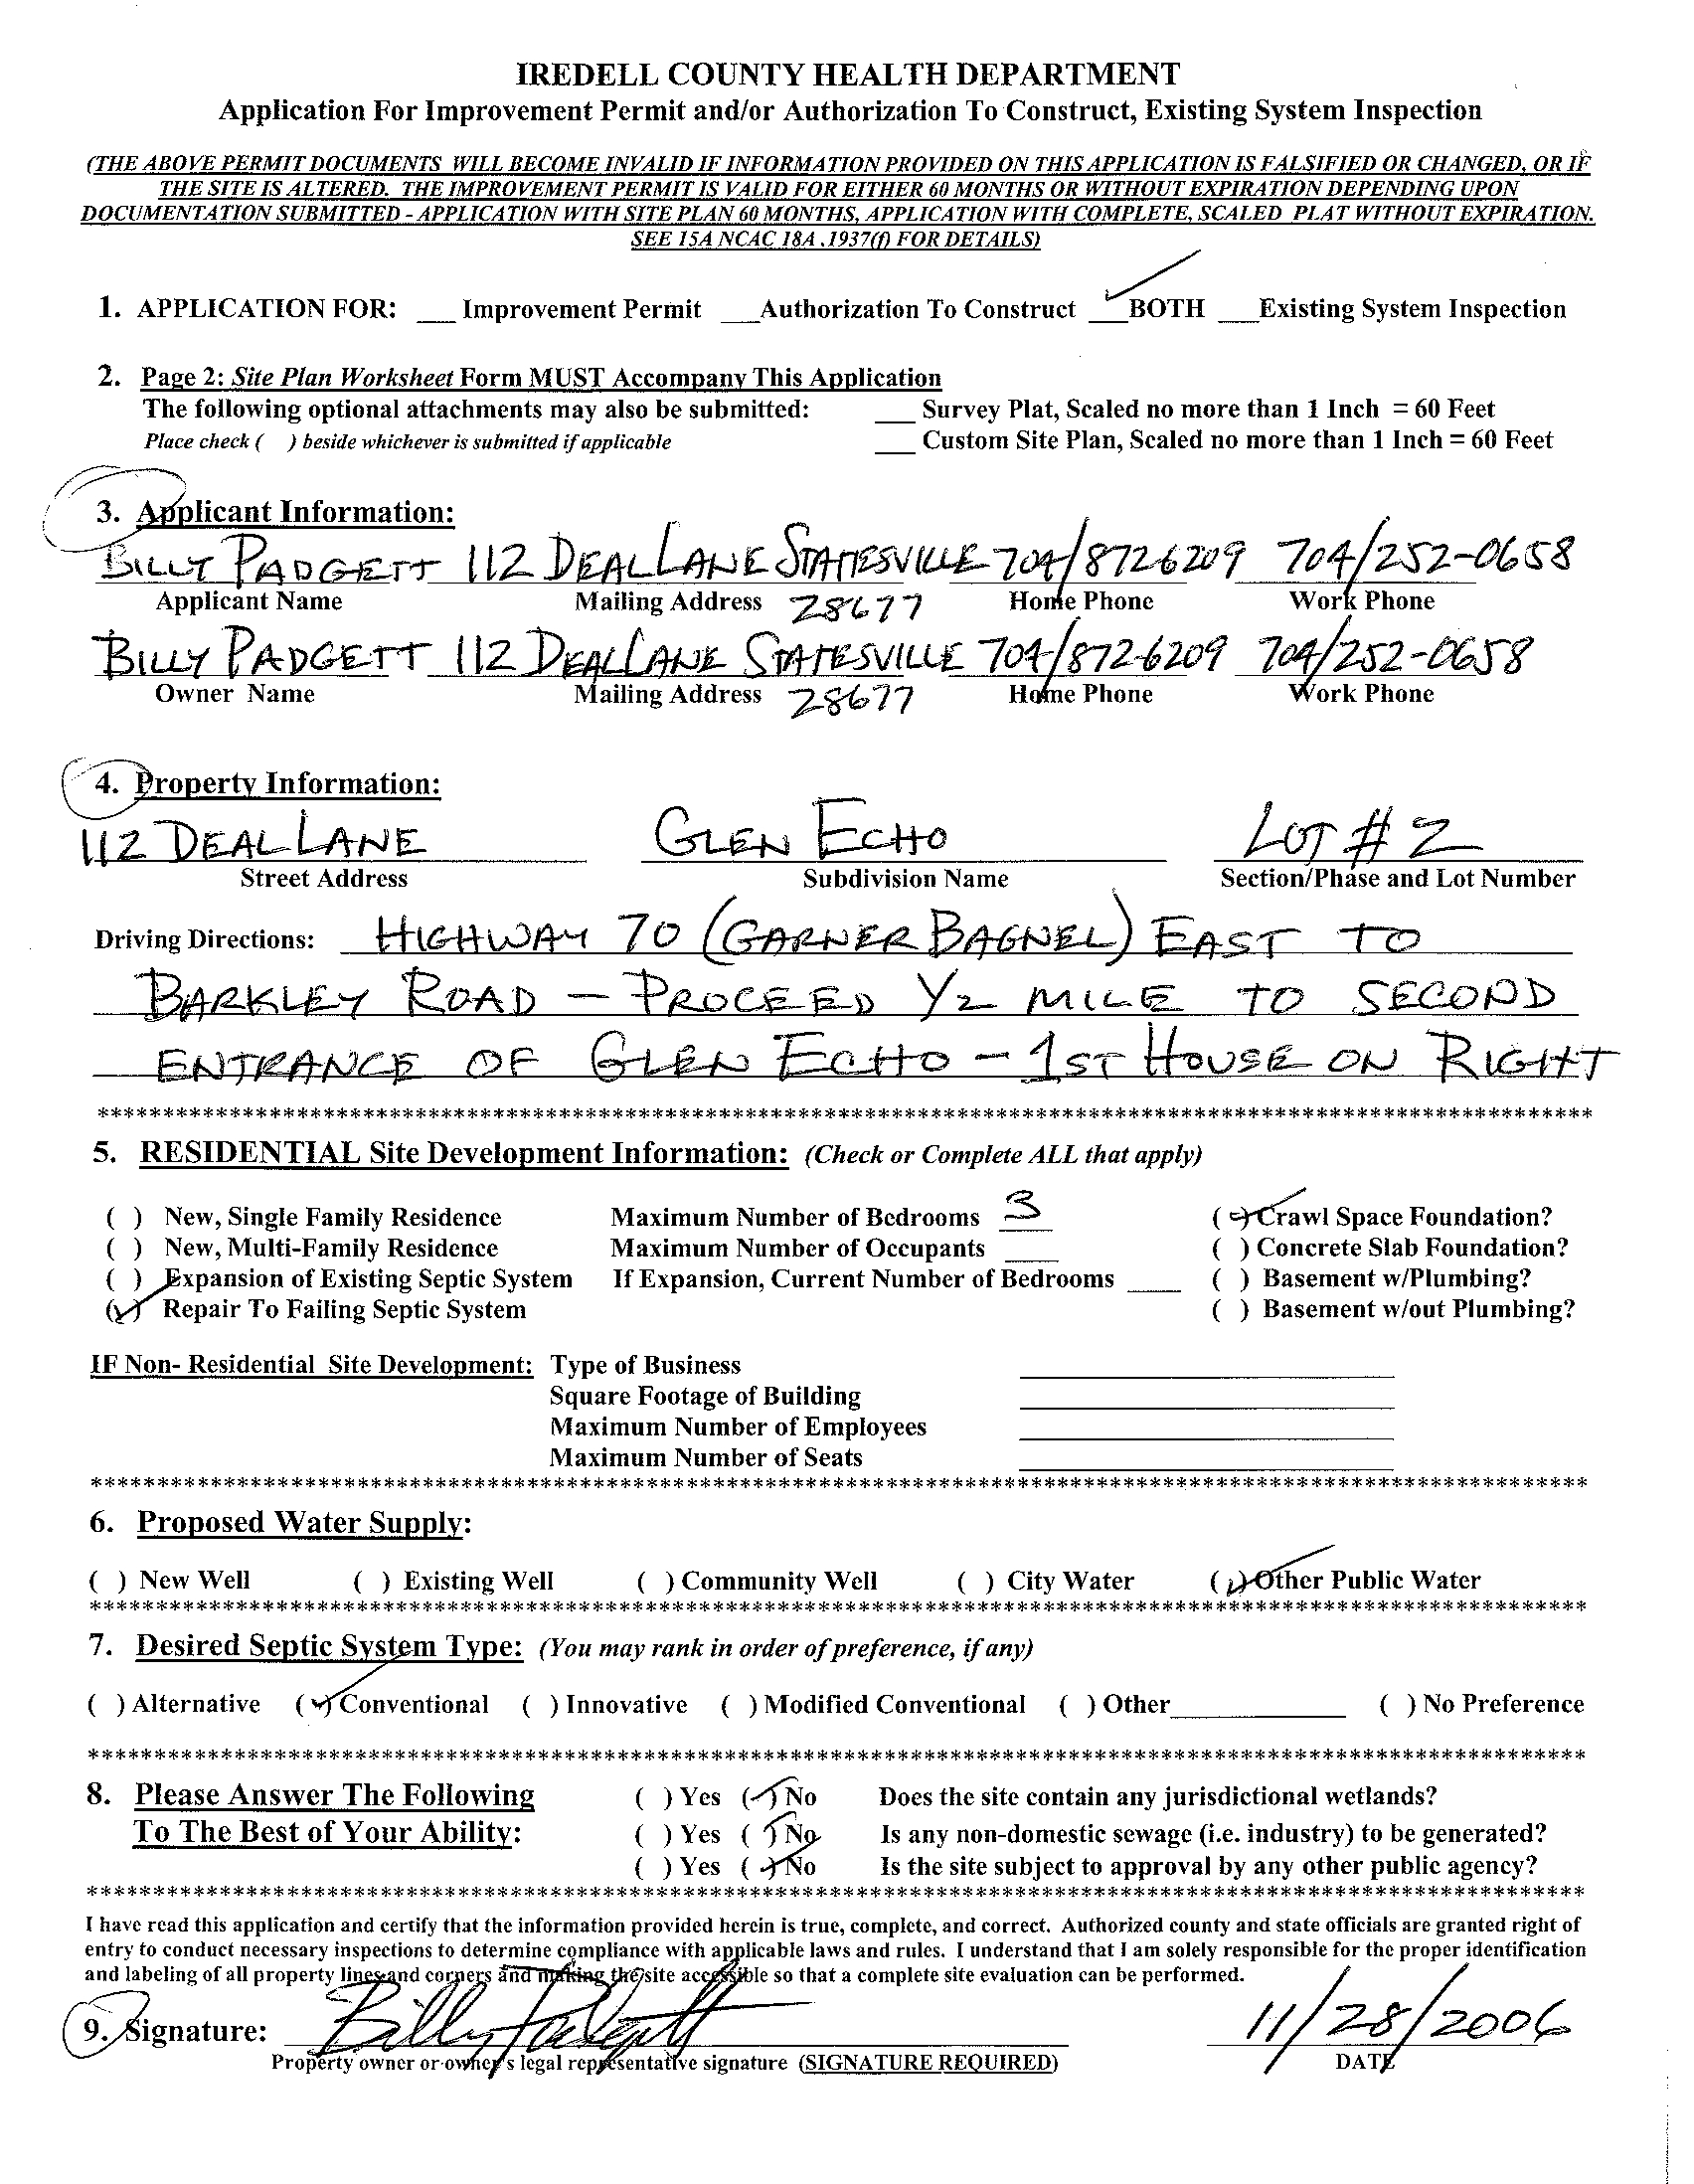 IREDELL COUNTY HEALTH DEPARTMENT
Application For Improvement Permit and/or Authorization To Construct, Existing System Inspection
(THE ABOVE PERMIT DOCUMENTS WILL BECOME INVALID IF INFORMATION PROVIDED ON THIS APPLICATION IS FALSIFIED OR CHANGED, OR IF
THE SITE IS ALTERED. THE IMPROVEMENT PERMIT IS VALID FOR EITHER 60 MONTHS OR WITHOUT EXPIRATION DEPENDING UPON
DOCUMENTATION SUBMITTED - APPLICATION WITH SITE PLAN 60 MONTHS, APPLICATION WITH COMPLETE, SCALED PLAT WITHOUT EXPIRATION.
SEE 15A NCAC 18A .1937(f) FOR DETAILS)
1. APPLICATION FOR: ___ Improvement Permit ___Authorization To Construct ✓ ___BOTH ___Existing System Inspection
2. Page 2: Site Plan Worksheet Form MUST Accompany This Application
The following optional attachments may also be submitted: ___ Survey Plat, Scaled no more than 1 Inch = 60 Feet
Place check ( ) beside whichever is submitted if applicable ___ Custom Site Plan, Scaled no more than 1 Inch = 60 Feet
3. Applicant Information:
BILLY PADGETT 112 DEAL LANE STATESVILLE 704/8726209 704/252-0658
Applicant Name Mailing Address 28677 Home Phone Work Phone
BILLY PADGETT 112 DEAL LANE STATESVILLE 704/872-6209 704/252-0658
Owner Name Mailing Address 28677 Home Phone Work Phone
4. Property Information:
112 DEAL LANE GLEN ECHO LOT # 2
Street Address Subdivision Name Section/Phase and Lot Number
Driving Directions: HIGHWAY 70 (GARNER BAGNEL) EAST TO
BARKLEY ROAD - PROCEED 1/2 MILE TO SECOND
ENTRANCE OF GLEN ECHO - 1ST HOUSE ON RIGHT
*****************************************************************************************************************
5. RESIDENTIAL Site Development Information: (Check or Complete ALL that apply)
( ) New, Single Family Residence Maximum Number of Bedrooms 3 (✓) Crawl Space Foundation?
( ) New, Multi-Family Residence Maximum Number of Occupants ____ ( ) Concrete Slab Foundation?
( ) Expansion of Existing Septic System If Expansion, Current Number of Bedrooms ____ ( ) Basement w/Plumbing?
(✓) Repair To Failing Septic System ( ) Basement w/out Plumbing?
IF Non- Residential Site Development: Type of Business
Square Footage of Building
Maximum Number of Employees
Maximum Number of Seats
*****************************************************************************************************************
6. Proposed Water Supply:
( ) New Well ( ) Existing Well ( ) Community Well ( ) City Water (✓) Other Public Water
*****************************************************************************************************************
7. Desired Septic System Type: (You may rank in order of preference, if any)
( ) Alternative (✓) Conventional ( ) Innovative ( ) Modified Conventional ( ) Other______________ ( ) No Preference
*****************************************************************************************************************
8. Please Answer The Following ( ) Yes (✓) No Does the site contain any jurisdictional wetlands?
To The Best of Your Ability: ( ) Yes (✓) No Is any non-domestic sewage (i.e. industry) to be generated?
( ) Yes (✓) No Is the site subject to approval by any other public agency?
*****************************************************************************************************************
I have read this application and certify that the information provided herein is true, complete, and correct. Authorized county and state officials are granted right of
entry to conduct necessary inspections to determine compliance with applicable laws and rules. I understand that I am solely responsible for the proper identification
and labeling of all property lines and corners and making the site accessible so that a complete site evaluation can be performed.
9. Signature: Billy Padgett 11/28/2006
Property owner or owner's legal representative signature (SIGNATURE REQUIRED) DATE